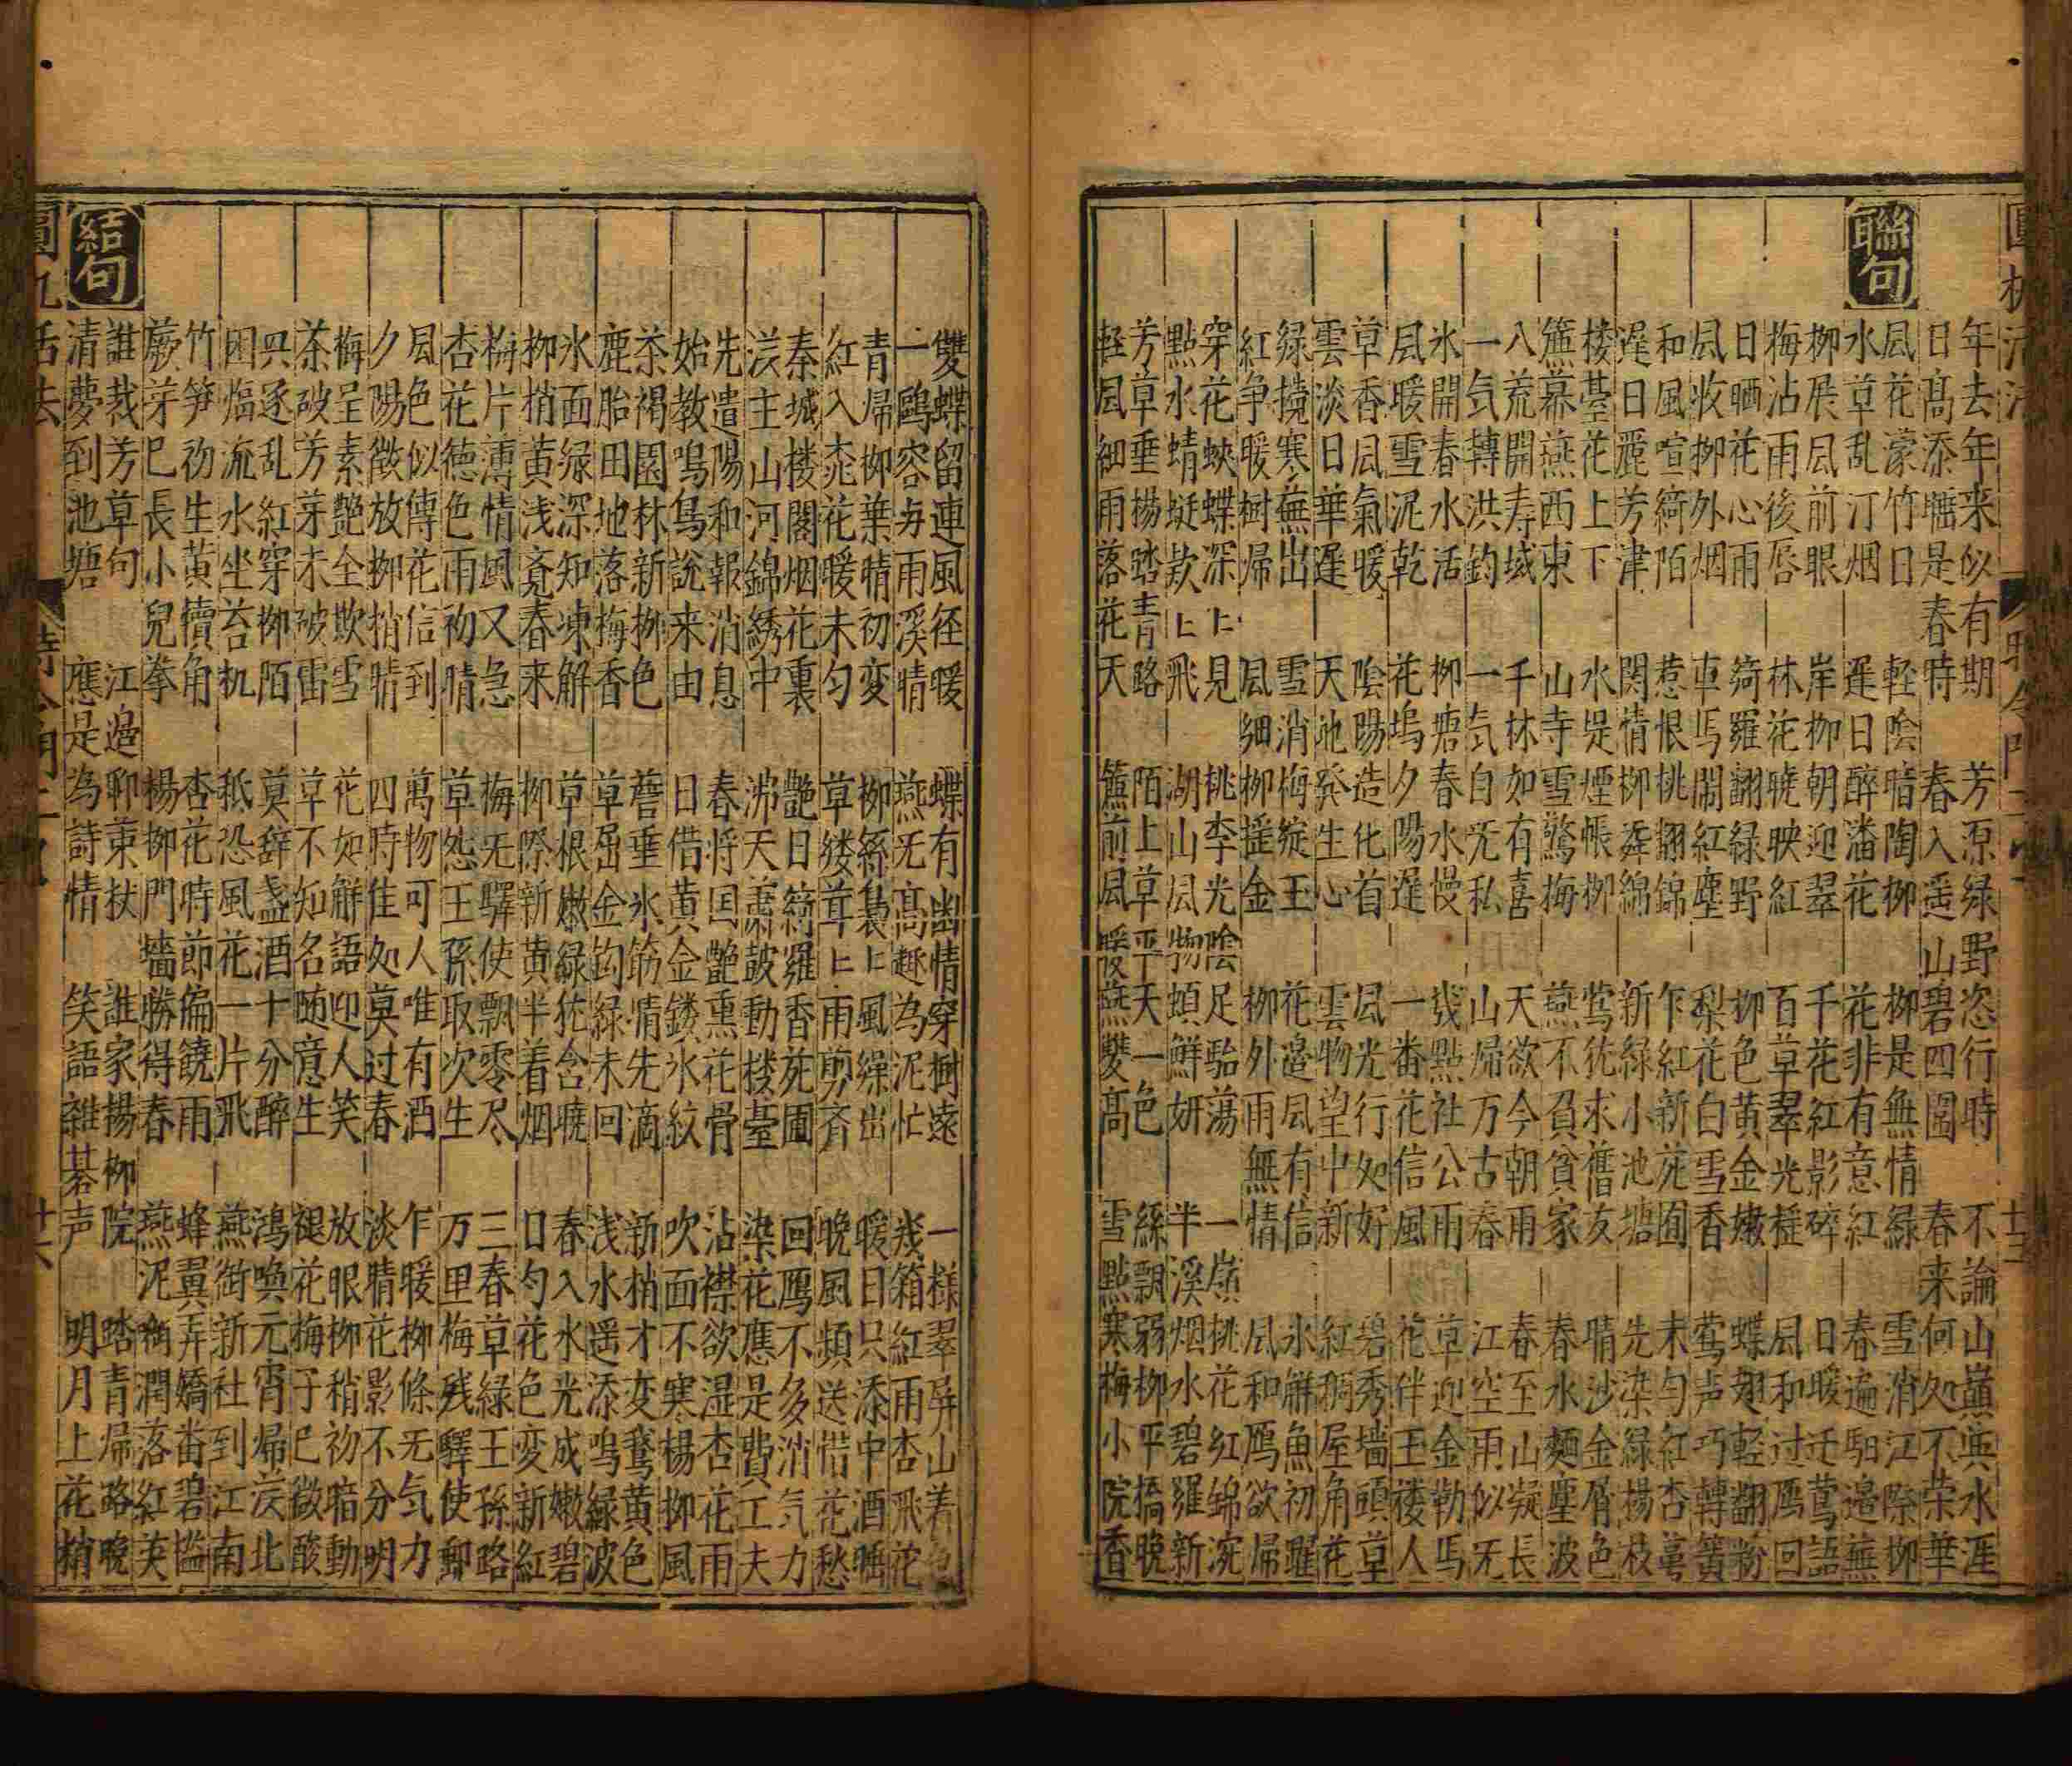 年去年来似有期 芳原绿野恣行時 不論山巔與水涯
日高添睡是春時 春入遥山碧四圍 春来何处不荣華
聯句
風花濛竹日 輕陰暗陶柳 柳是無情緑 雪消江際柳
水草乱汀烟 遲日醉潘花 花非有意紅 春遍馹邉蕪
柳展風前眼 岸柳朝迎翠 千花紅影碎 日暖迁鶯語
梅沾雨後唇 林花曉映紅 百草翠光搓 風和过鴈回
日晒花心雨 綺羅翻緑野 柳色黄金嫩 蝶翅輕翻粉
風收柳外烟 車馬閙紅塵 梨花白雪香 鶯声巧轉簧
和風喧綺陌 惹恨桃翻錦 乍紅新苑囿 未匀紅杏萼
遲日麗芳津 関情柳綿 新緑小池塘 先染緑楊枝
楼臺花上下 水堤煙帳柳 鶯犹求舊友 晴沙金屑色
簾幕燕西東 山寺雪驚梅 燕不負貧家 春水麵塵波
八荒開寿域 千林如有喜 天欲今朝雨 春至山凝長
一気轉洪鈞 一気白无私 山帰万古春 江空雨似无
氷開春水活 柳塘春水慢 幾點社公雨 草迎金勒馬
風暖雪泥乾 花塢夕陽遲 一番花信風 花伴玉楼人
草香風氣暖 陰陽造化首 風光行处好 碧秀墙頭草
雲淡日華遲 天地発生心 雲物望中新 紅稠屋角花
緑撓寒蕪出 雪消梅綻玉 花邉風有信 氷觧魚初躍
紅争暖樹帰 風細柳揺金 柳外雨無情 風和鴈欲帰
穿花蛺蝶深〻見 桃李光陰足駘蕩 一嶺桃花紅錦涴
點水蜻蜓欵〻飛 湖山風物頗鮮妍 半溪烟水碧羅新
芳草垂楊踏青路 陌上草平天一色 絲飄弱柳平橋晚
軽風細雨落花天 簾前風暖燕雙高 雪點寒梅小院香
雙蝶留連風径暖 蝶有幽情穿樹遠 一様翠屏山着色
一鷗容与雨溪晴 燕无高趣為泥忙 幾箱紅雨杏飛花
青帰柳葉晴初变 柳絲裊〻風繰出 暖日只添中酒睡
紅入桃花暖未匀 草縷茸〻雨剪齐 晚風頻送惜花愁
秦城楼閣烟花裏 艶日綺羅香苑圃 回鴈不多消气力
漢主山河錦綉中 沸天簫鼓動楼臺 染花應是費工夫
先遣陽和報消息 春将国艶熏花骨 沾襟欲湿杏花雨
始教鳴鳥説来由 日借黄金鏤氷紋 吹面不寒楊柳風
茶褐園林新柳色 簷垂氷筋情先滴 新梢才変鵞黄色
鹿胎田地落梅香 草屈金鈎緑未回 浅水遥添鳴緑波
氷面緑深知凍解 草根嫩緑犹含曉 春入水光成嫩碧
柳梢黄浅覓春来 柳際新黄半着烟 日匀花色変新紅
梅片薄情風又急 梅无驛使飄零尽 三春草緑王孫路
杏花徳色雨初晴 草怨王孫取次生 万里梅残驛使郵
風色似傳花信到 萬物可人唯有酒 乍暖柳條无气力
夕陽微放柳梢晴 四時佳处莫过春 淡晴花影不分明
梅呈素艶全欺雪 花如觧語迎人笑 放眼柳稍初暗動
茶破芳芽未破雷 草不知名随意生 褪花梅子巳微酸
與逐乱紅穿柳陌 莫辞盞酒十分醉 鴻喚元宵帰漢北
困煴流水坐苔机 秪恐風花一片飛 燕銜新社到江南
竹笋初生黄犢角 杏花時節偏饒雨 蜂翼弄嬌番碧槛
蕨芽巳長小兒拳 楊柳門墻勝得春 燕泥銜潤落紅英
結句
誰裁芳草句 江邉聊策杖 誰家楊柳院 踏青帰路晚
清夢到池塘 應是為詩情 笑語雜棊声 明月上花梢